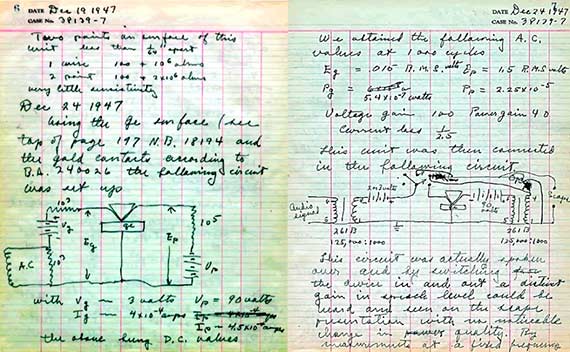 6
DATE Dec 19 1947
CASE No. 38139-7
Two points on surface of this
unit less than 1/64" apart
1 wire 100 + 10⁶ ohms
2 point 100 + 2×10⁶ ohms
very little sensitivity
Dec 24 1947
Using the Ge surface (see
top of page 197 N.B. 18194 and
the gold contacts according to
B.A. 240026 the following circuit
was set up
10³
Vg
A.C.
10³
Eg
ge
Ep
10⁵
Vp
with Vg ~ 3 volts Vp = 90 volts
Ig ~ 4×10⁻⁴ amps
Ip = 4.5×10⁻⁴ amps
the above being D.C. values
7
DATE Dec 24 1947
CASE No. 38139-7
We obtained the following A.C.
values at 1000 cycles
Eg = .015 R.M.S. volts Ep = 1.5 R.M.S volts
Pg = 5.4×10⁻⁷ watts Pp = 2.25×10⁻⁵
Voltage gain 100 Power gain 40
Current loss 1/2.5
This unit was then connected
in the following circuit
Audio signal
261B
125,000:1000
volts
261B
125,000:1000
Scope
This circuit was actually spoken
over and by switching
the device in and out a distinct
gain in speech level could be
heard and seen on the scope
presentation with no noticeable
change in quality. By
measurements at a fixed frequency